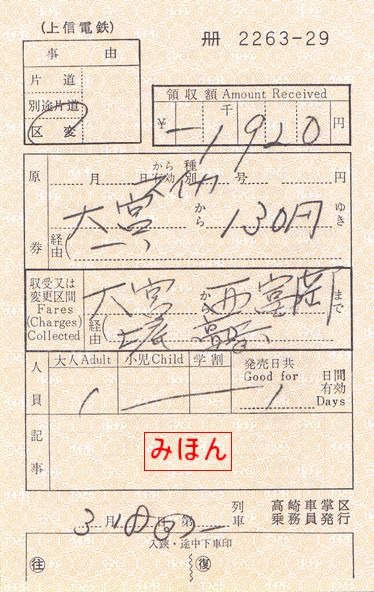 (上信電鉄)
冊 2263-29
事由
片道
別途片道
区変
領収額 Amount Received
千
¥ 1920 円
原券
月 日有効 から 種別 号 円
大宮 から 130円 ゆき
経由(
収受又は変更区間
Fares (Charges) Collected
大宮 から 西富岡 まで
経由(
人員
大人Adult 小児Child 学割
1
発売日共 Good for 1 日間有効 Days
記事
みほん
3月18日 第 列車
高崎車掌区乗務員発行
入鋏・途中下車印
往 復